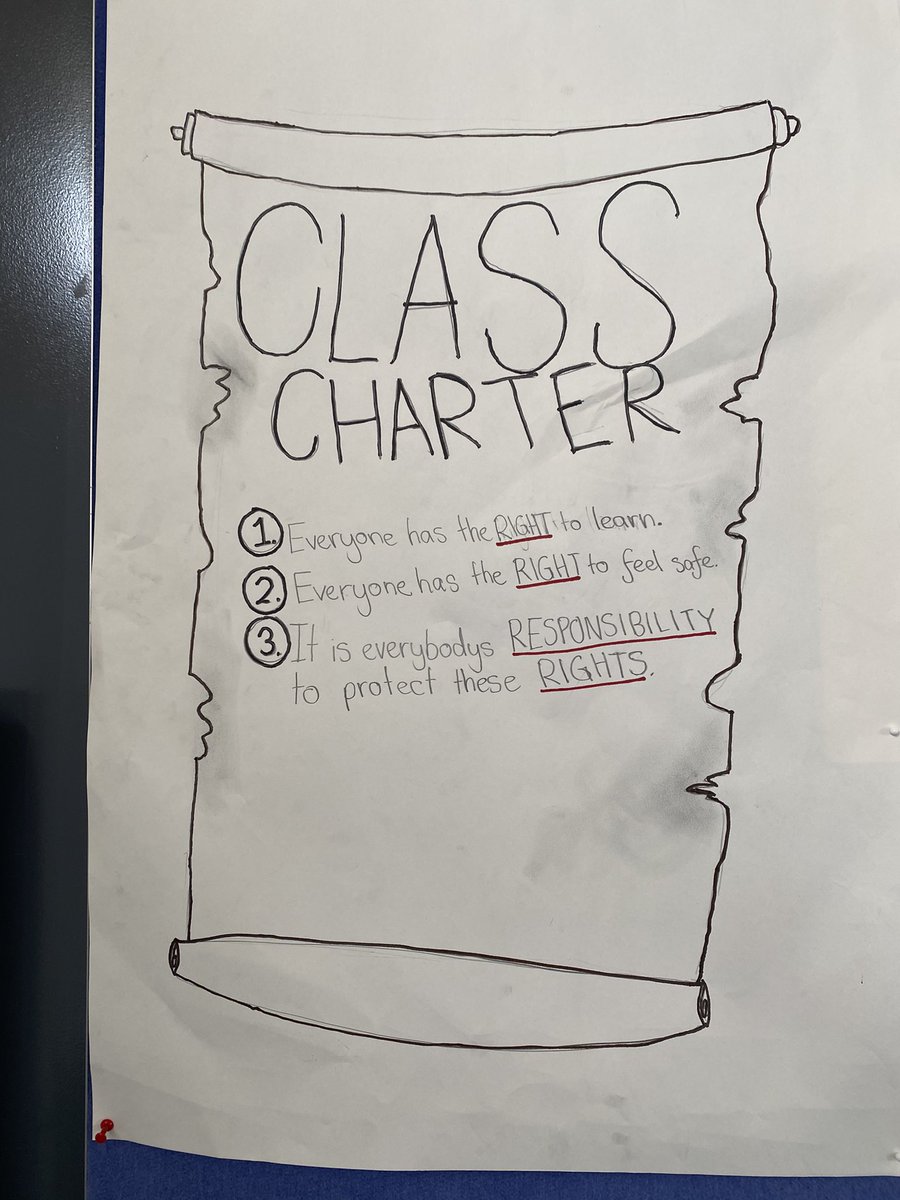 CLASS
CHARTER
1. Everyone has the RIGHT to learn.
2. Everyone has the RIGHT to feel safe.
3. It is everybodys RESPONSIBILITY
to protect these RIGHTS.